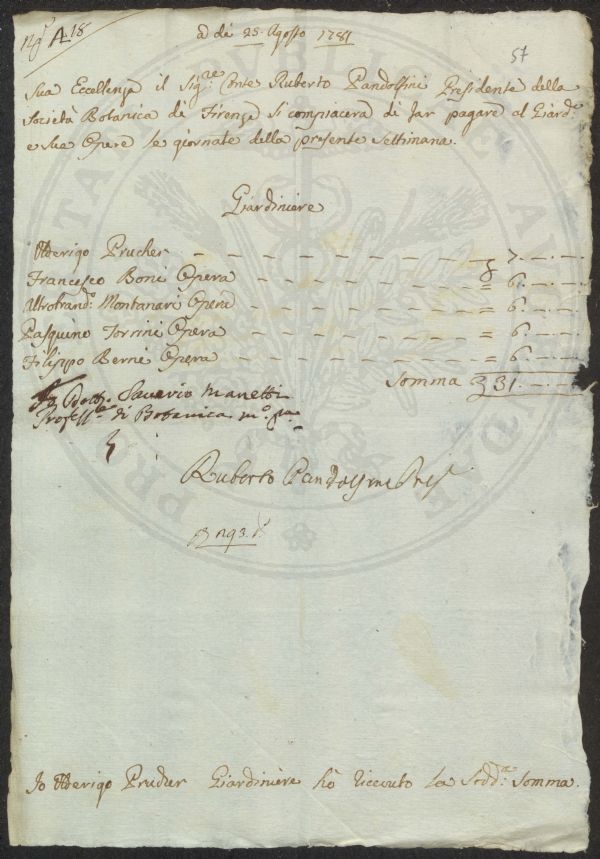 A 18
a dì 25. Agosto 1781
57
Sua Eccellenza il Sig.re Conte Ruberto Pandolfini Presidente della
Società Botanica di Firenze si compiacerà di far pagare al Giard.e
e sue Opere le giornate della presente Settimana.
Giardiniere
Prucher 7.
Francesco Boni Opera = 6.
Montanari Opera = 6.
Pasquino Torrini Opera = 6.
Filippo Berni Opera = 6.
Somma 31.
Saverio Manetti
Profess.re di Botanica m.o pa
Ruberto Pandolfini Pres.
Io Prucher Giardiniere hò ricevuto la Sudd.a Somma.